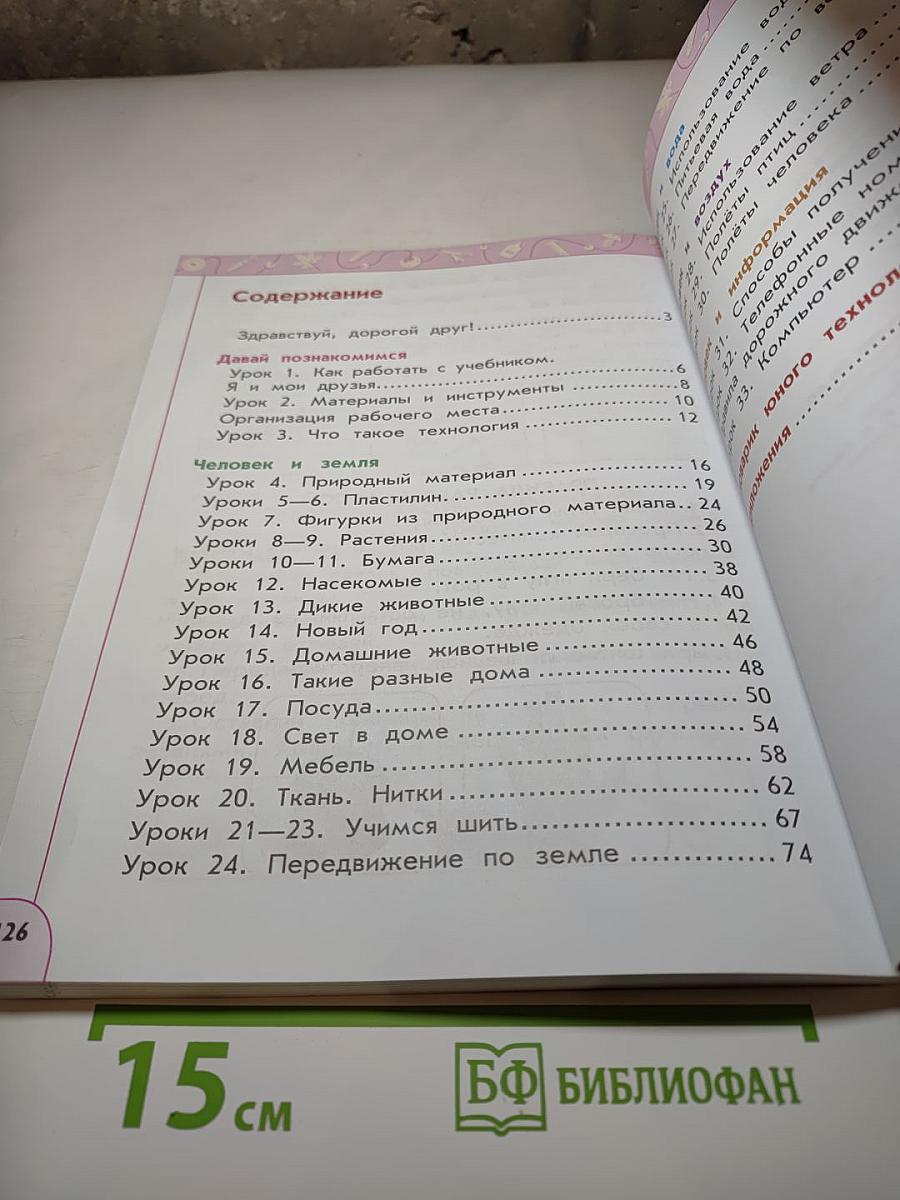 Содержание
Здравствуй, дорогой друг!..............................3
Давай познакомимся
Урок 1. Как работать с учебником.
Я и мои друзья..............................6
Урок 2. Материалы и инструменты ..............8
Организация рабочего места....................10
Урок 3. Что такое технология ....................12
Человек и земля
Урок 4. Природный материал ....................16
Уроки 5—6. Пластилин..............................19
Урок 7. Фигурки из природного материала..24
Уроки 8—9. Растения..............................26
Уроки 10—11. Бумага..............................30
Урок 12. Насекомые ..............................38
Урок 13. Дикие животные.........................40
Урок 14. Новый год..............................42
Урок 15. Домашние животные ....................46
Урок 16. Такие разные дома ....................48
Урок 17. Посуда..............................50
Урок 18. Свет в доме ..............................54
Урок 19. Мебель ..............................58
Урок 20. Ткань. Нитки..............................62
Уроки 21—23. Учимся шить....................67
Урок 24. Передвижение по земле ..............74
126
и вода
Использование
Питьевая вода
Передвижение по
и воздух
28. Использование ветра
29. Полёты птиц
30. Полёты человека
и информация
31. Способы
32. Телефонные
дорожного
33. Компьютер
юного
15 см
БФ БИБЛИОФАН